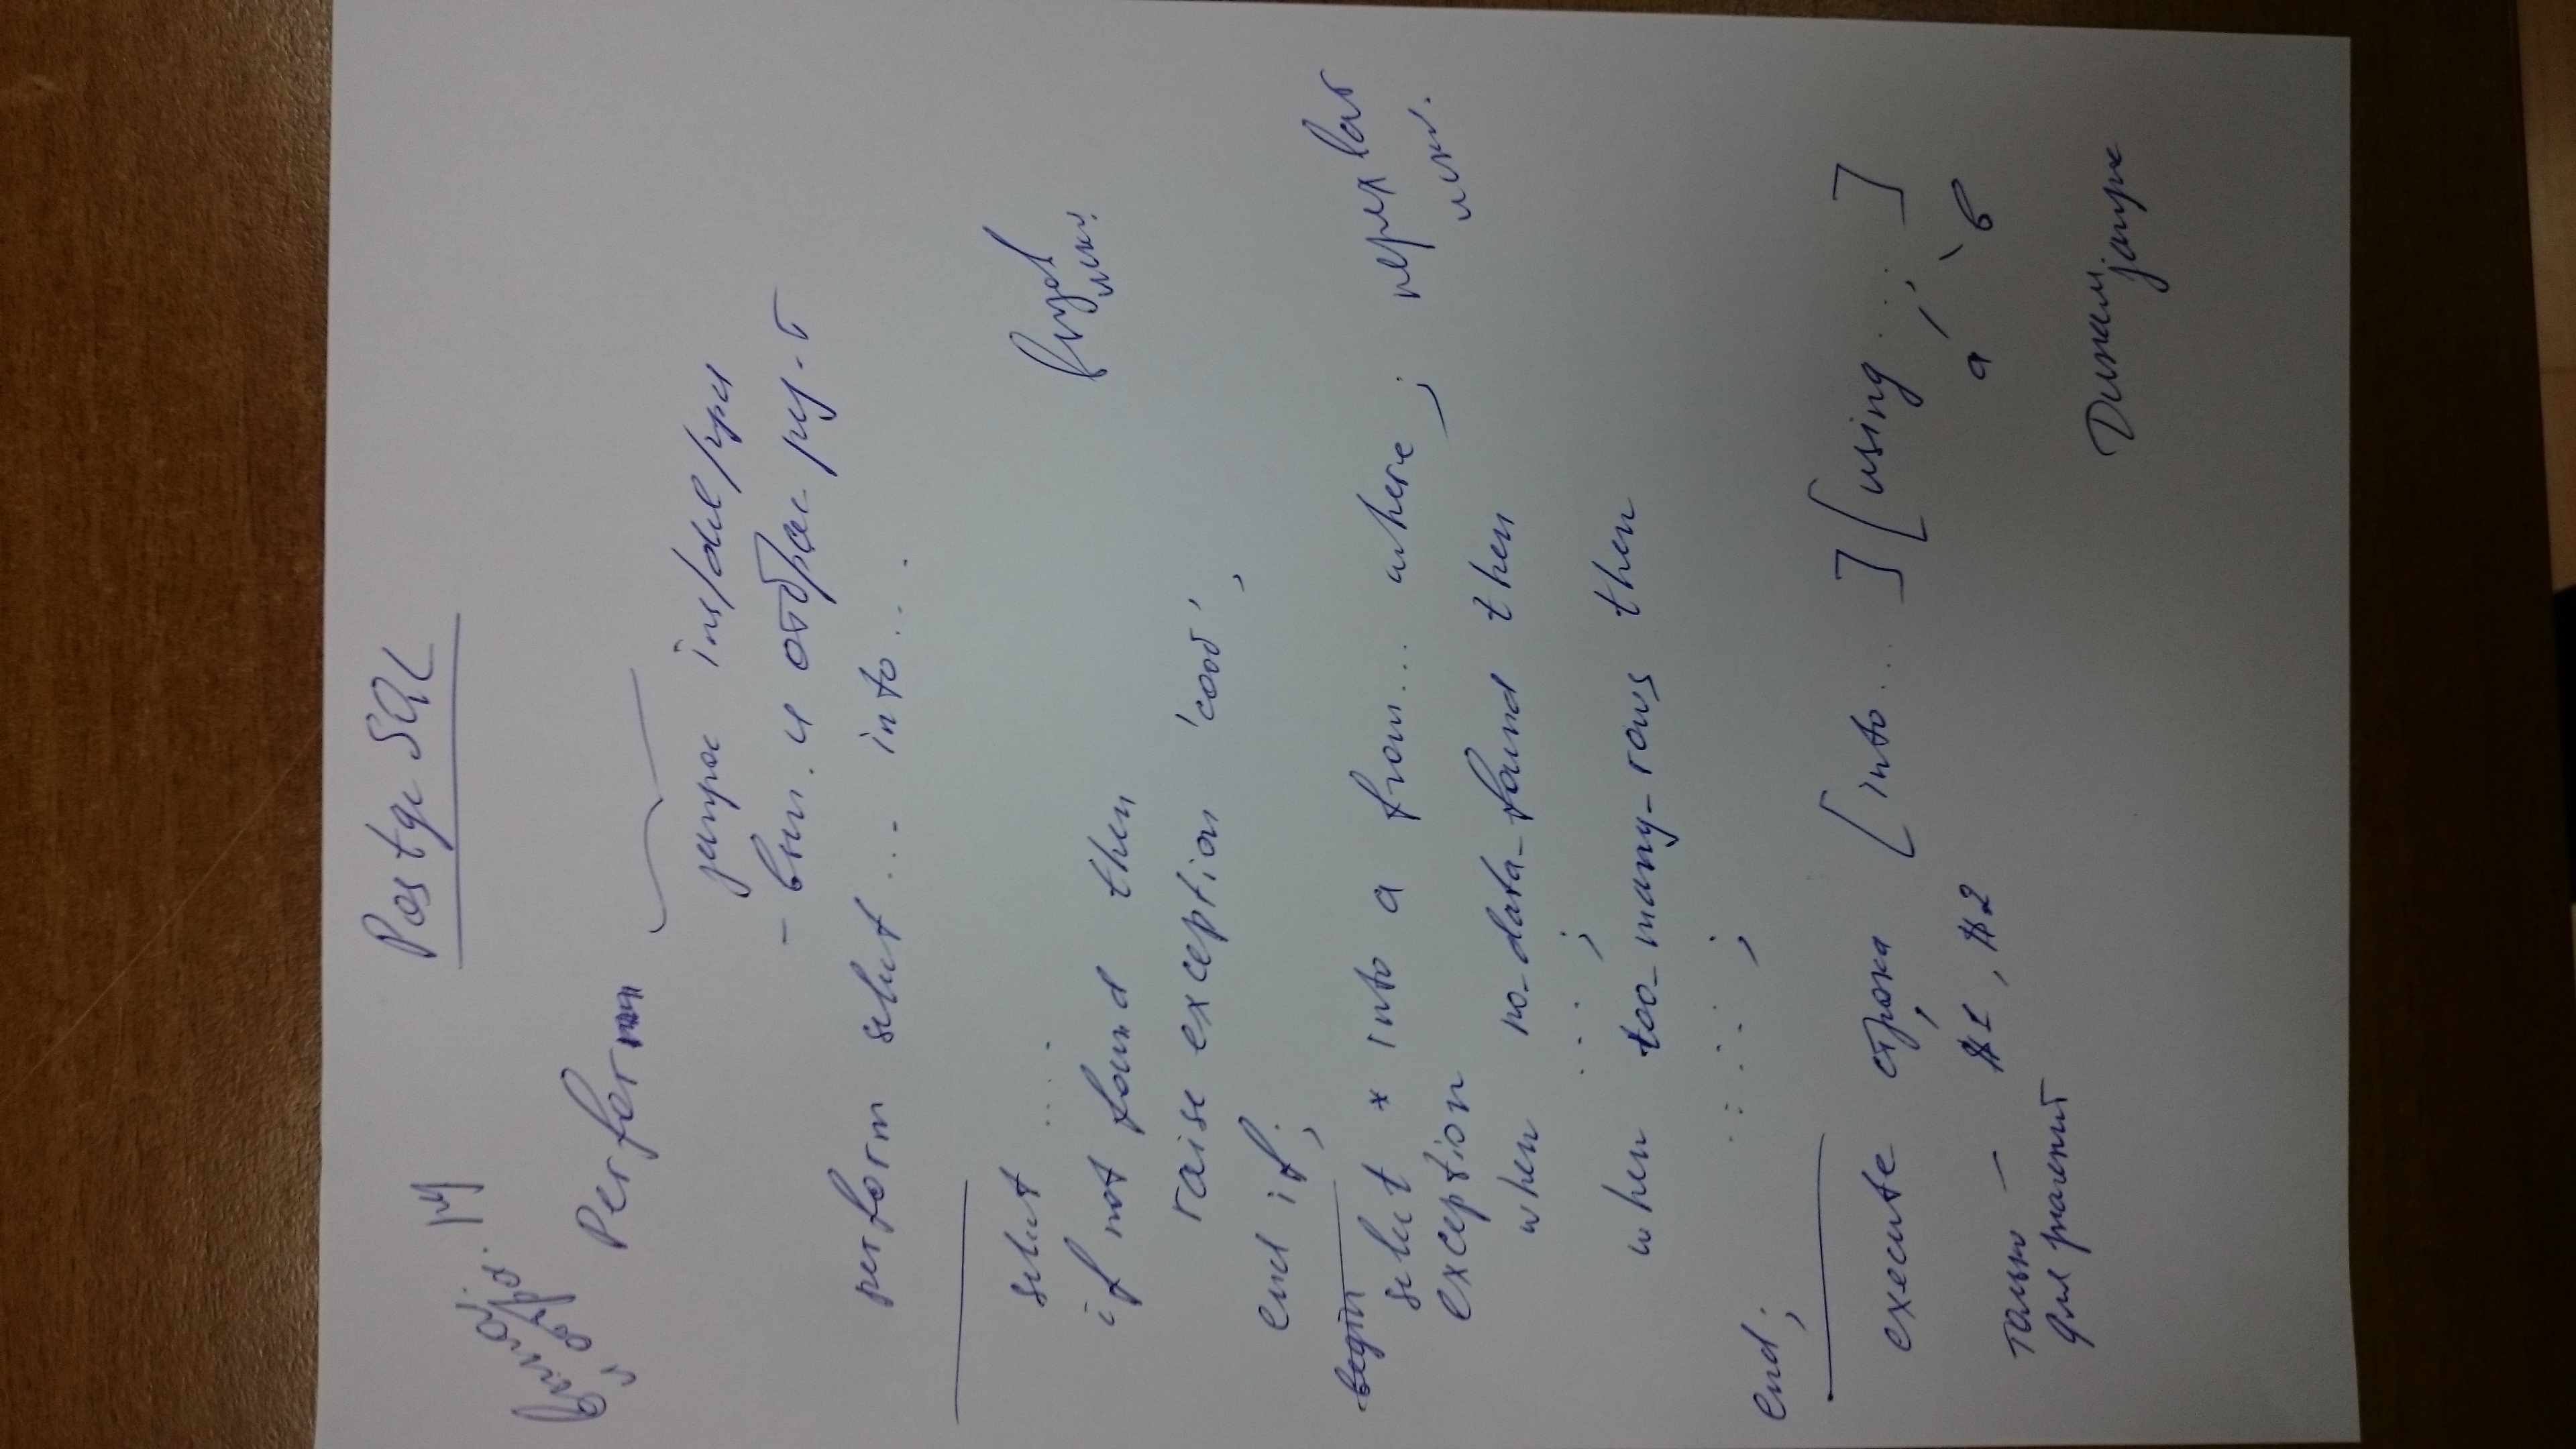 PostgreSQL
вып.
и отбра. рез
Perform
запрос ins/del/upd
- вып. и отбрас рез-т
perform select ... into ...
select ....
вызов
искл.
if not found then
raise exception 'сооб',
end if;
begin
select * into a from... where ;
перехват
искл.
exception
when no_data_found then
... ;
when too_many_rows then
..... ;
end;
execute строка [into ...] [using ... ]
$1, $2
a в
только -
для значений
Динам.
запрос